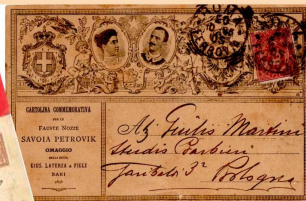 CARTOLINA COMMEMORATIVA
PER LE
FAUSTE NOZZE
SAVOIA PETROVIK
OMAGGIO
DELLA DITTA
GIUS. LATERZA & FIGLI
BARI
1896
Giulio Martini
Studio Barbieri
Garibaldi 3
Bologna